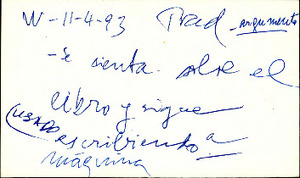 W-11-4-93 Prad - argumento
- se sienta sobre el
libro y sigue
(usado escribiendo a
máquina